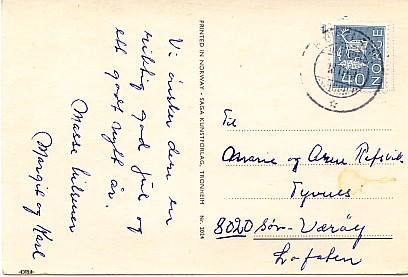 Vi ønsker dere en
riktig god jul og
ett godt nytt år.
Masse hilsener
Margit og Karl
PRINTED IN NORWAY - SAGA KUNSTFORLAG, TRONHEIM Nr. 2014
NORGE
40
Til
og Arne
8020 Sør-Værøy
Lofoten